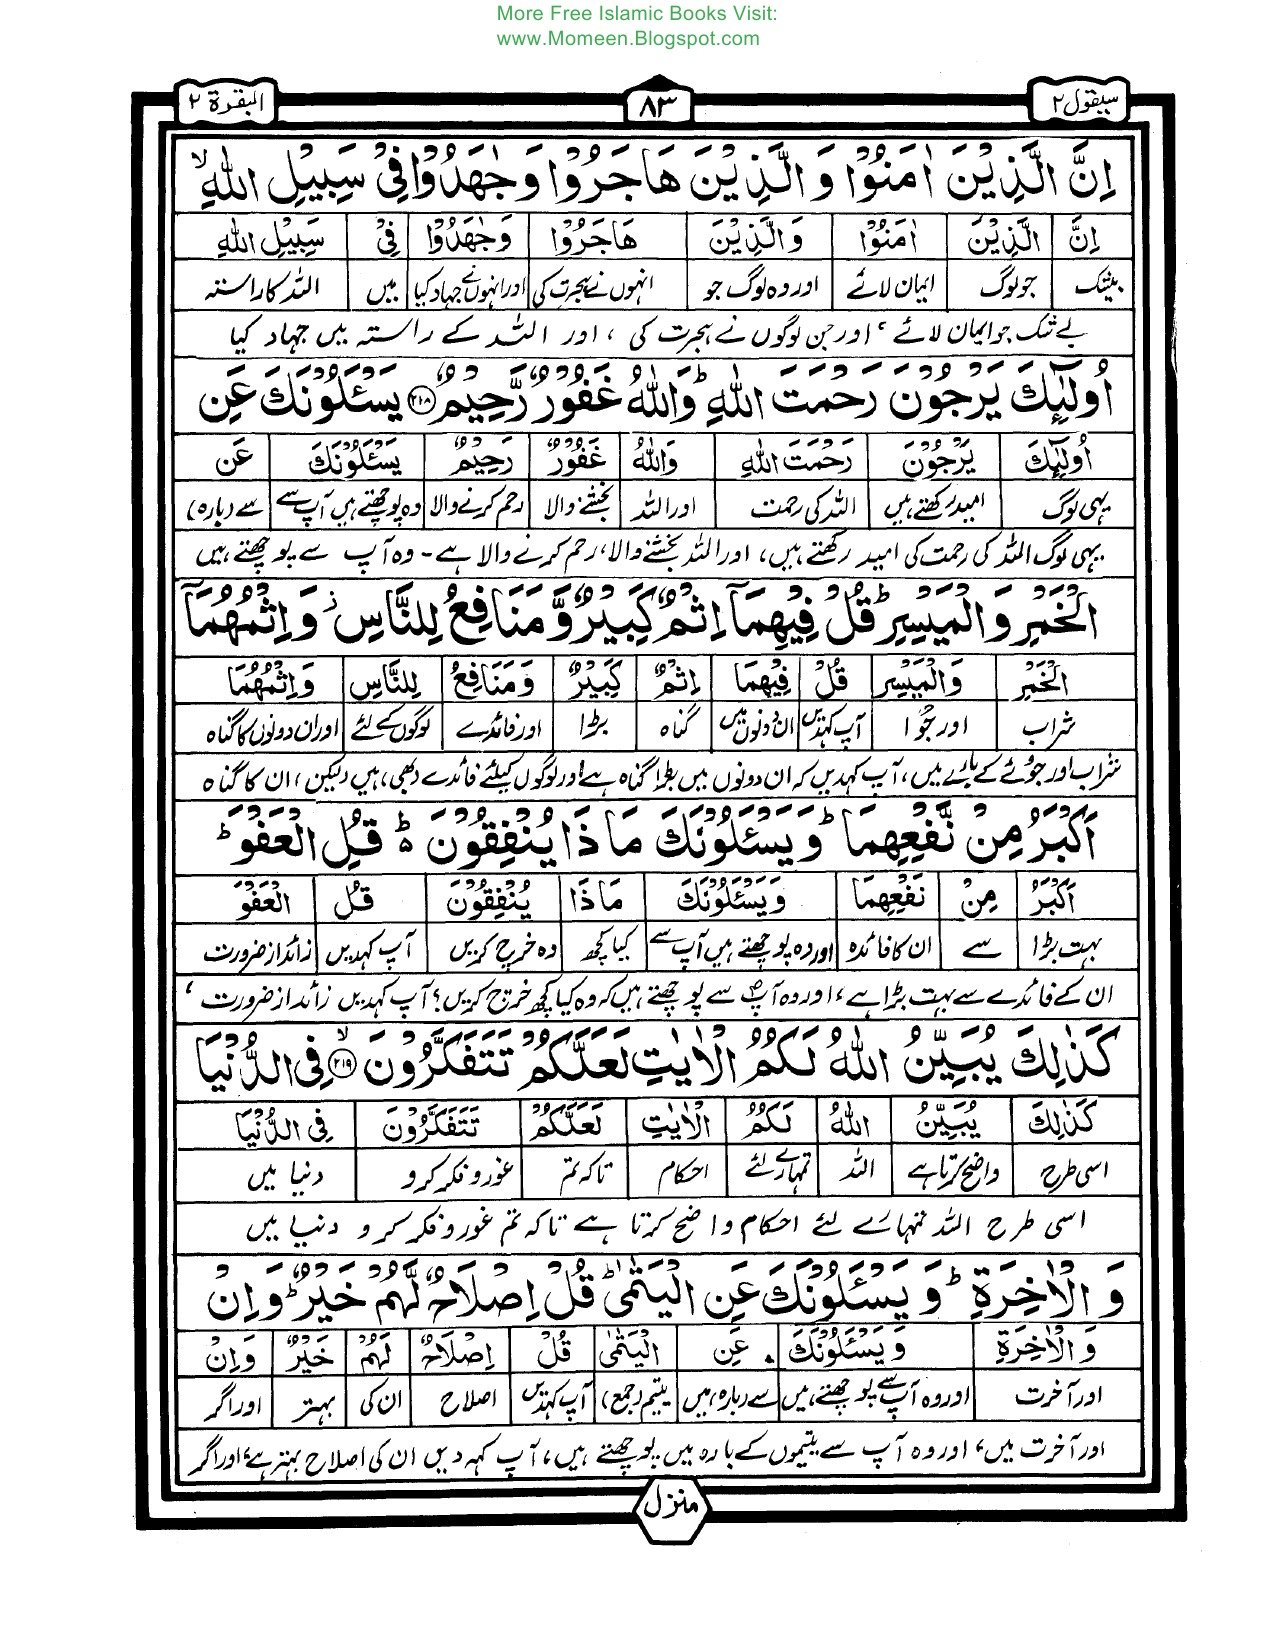 More Free Islamic Books Visit:
www.Momeen.Blogspot.com
سیقول ۲ ۸۳ البقرة ۲
اِنَّ الَّذِيْنَ اٰمَنُوْا وَ الَّذِيْنَ هَاجَرُوْا وَ جٰهَدُوْا فِيْ سَبِيْلِ اللّٰهِ ۙ
اِنَّ الَّذِيْنَ اٰمَنُوْا وَالَّذِيْنَ هَاجَرُوْا وَجٰهَدُوْا فِيْ سَبِيْلِ اللّٰهِ
بیشک جو لوگ ایمان لائے اور وہ لوگ جو انہوں نے ہجرت کی اور انہوں نے جہاد کیا میں اللہ کا راستہ
بے شک جو ایمان لائے ، اور جن لوگوں نے ہجرت کی ، اور اللہ کے راستہ میں جہاد کیا
اُولٰٓئِكَ يَرْجُوْنَ رَحْمَتَ اللّٰهِ ؕ وَاللّٰهُ غَفُوْرٌ رَّحِيْمٌ ﴿۲۱۸﴾ يَسْـَٔلُوْنَكَ عَنِ
اُولٰٓئِكَ يَرْجُوْنَ رَحْمَتَ اللّٰهِ وَاللّٰهُ غَفُوْرٌ رَحِيْمٌ يَسْـَٔلُوْنَكَ عَنِ
یہی لوگ امید رکھتے ہیں اللہ کی رحمت اور اللہ بخشنے والا رحم کرنے والا وہ پوچھتے ہیں آپ سے سے (بارہ)
یہی لوگ اللہ کی رحمت کی امید رکھتے ہیں، اور اللہ بخشنے والا، رحم کرنے والا ہے۔ وہ آپ سے پوچھتے ہیں
الْخَمْرِ وَ الْمَيْسِرِ ؕ قُلْ فِيْهِمَاۤ اِثْمٌ كَبِيْرٌ وَّ مَنَافِعُ لِلنَّاسِ ؗ وَ اِثْمُهُمَاۤ
الْخَمْرِ وَالْمَيْسِرِ قُلْ فِيْهِمَا اِثْمٌ كَبِيْرٌ وَمَنَافِعُ لِلنَّاسِ وَاِثْمُهُمَا
شراب اور جُوا آپ کہدیں ان دونوں میں گناہ بڑا اور فائدے لوگوں کے لئے اور ان دونوں کا گناہ
شراب اور جوئے کے بارے میں، آپ کہدیں کہ ان دونوں میں بڑا گناہ ہے اور لوگوں کیلئے فائدے (بھی) ہیں (لیکن) ان کا گناہ
اَكْبَرُ مِنْ نَّفْعِهِمَا ؕ وَ يَسْـَٔلُوْنَكَ مَاذَا يُنْفِقُوْنَ ؕ قُلِ الْعَفْوَ ؕ
اَكْبَرُ مِنْ نَفْعِهِمَا وَيَسْـَٔلُوْنَكَ مَاذَا يُنْفِقُوْنَ قُلِ الْعَفْوَ
بہت بڑا سے ان کا فائدہ اور وہ پوچھتے ہیں آپ سے کیا کچھ وہ خرچ کریں آپ کہدیں زائد از ضرورت
ان کے فائدے سے بہت بڑا ہے، اور وہ آپ سے پوچھتے ہیں کہ وہ کیا کچھ خرچ کریں؟ آپ کہدیں زائد از ضرورت ،
كَذٰلِكَ يُبَيِّنُ اللّٰهُ لَكُمُ الْاٰيٰتِ لَعَلَّكُمْ تَتَفَكَّرُوْنَ ۙ﴿۲۱۹﴾ فِي الدُّنْيَا
كَذٰلِكَ يُبَيِّنُ اللّٰهُ لَكُمُ الْاٰيٰتِ لَعَلَّكُمْ تَتَفَكَّرُوْنَ فِي الدُّنْيَا
اسی طرح واضح کرتا ہے اللہ تمہارے لئے احکام تاکہ تم غور و فکر کرو دنیا میں
اسی طرح اللہ تمہارے لئے احکام واضح کرتا ہے تاکہ تم غور و فکر کرو دنیا میں
وَ الْاٰخِرَةِ ؕ وَ يَسْـَٔلُوْنَكَ عَنِ الْيَتٰمٰى ؕ قُلْ اِصْلَاحٌ لَّهُمْ خَيْرٌ ؕ وَ اِنْ
وَ الْاٰخِرَةِ وَيَسْـَٔلُوْنَكَ عَنِ الْيَتٰمٰى قُلْ اِصْلَاحٌ لَهُمْ خَيْرٌ وَاِنْ
اور آخرت اور وہ آپ سے پوچھتے ہیں سے (بارہ) میں یتیم (جمع) آپ کہدیں اصلاح ان کی بہتر اور اگر
اور آخرت میں، اور وہ آپ سے یتیموں کے بارہ میں پوچھتے ہیں، آپ کہہ دیں ان کی اصلاح بہتر ہے، اور اگر
منزل